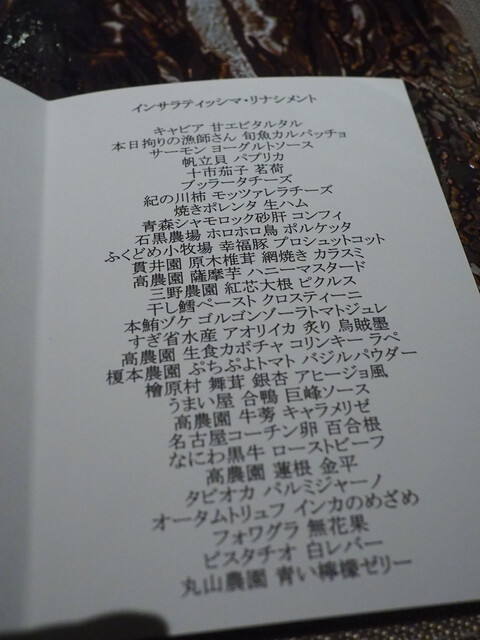 インサラティッシマ・リナシメント
キャビア 甘エビタルタル
本日拘りの漁師さん 旬魚カルパッチョ
サーモン ヨーグルトソース
帆立貝 パプリカ
十市茄子 茗荷
ブッラータチーズ
紀の川柿 モッツァレラチーズ
焼きポレンタ 生ハム
青森シャモロック砂肝 コンフィ
石黒農場 ホロホロ鳥 ポルケッタ
ふくどめ小牧場 幸福豚 プロシュットコット
貫井園 原木椎茸 網焼き カラスミ
高農園 薩摩芋 ハニーマスタード
三野農園 紅芯大根 ピクルス
干し鱈ペースト クロスティーニ
本鮪ヅケ ゴルゴンゾーラトマトジュレ
すぎ省水産 アオリイカ 炙り 烏賊墨
高農園 生食カボチャ コリンキー ラペ
榎本農園 ぷちぷよトマト バジルパウダー
檜原村 舞茸 銀杏 アヒージョ風
うまい屋 合鴨 巨峰ソース
高農園 牛蒡 キャラメリゼ
名古屋コーチン卵 百合根
なにわ黒牛 ローストビーフ
高農園 蓮根 金平
タピオカ パルミジャーノ
オータムトリュフ インカのめざめ
フォワグラ 無花果
ピスタチオ 白レバー
丸山農園 青い檸檬ゼリー